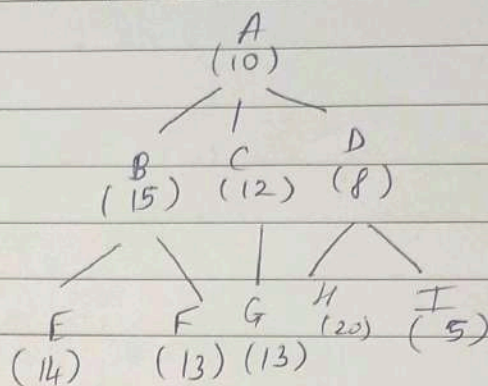 A
(10)
B C D
(15) (12) (8)
E F G H I
(14) (13) (13) (20) (5)